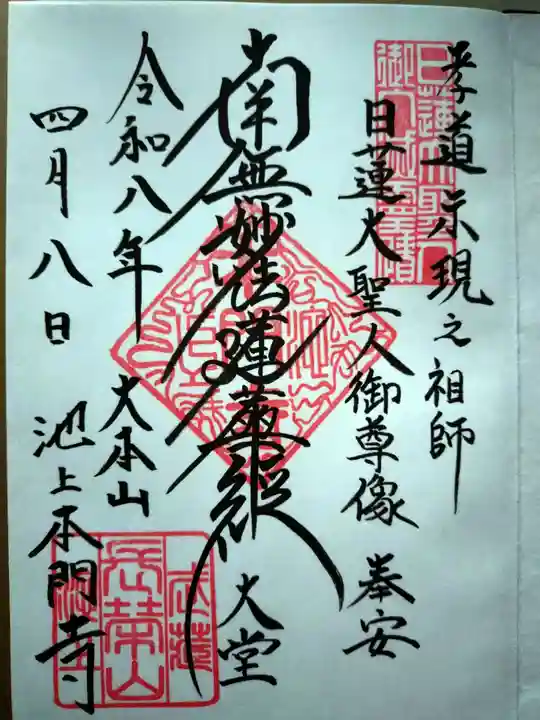 孝道示現之祖師
日蓮大聖人御尊像 奉安
南無妙法蓮華経 大堂
令和八年 大本山
四月八日 池上本門寺
長栄山